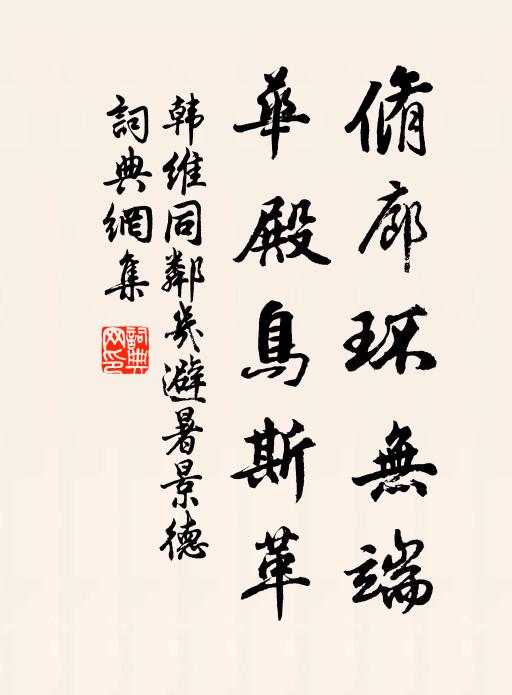 脩廊环無端
華殿鳥斯革
韩維同鄰幾避暑景德
詞典網集
詞典
网印